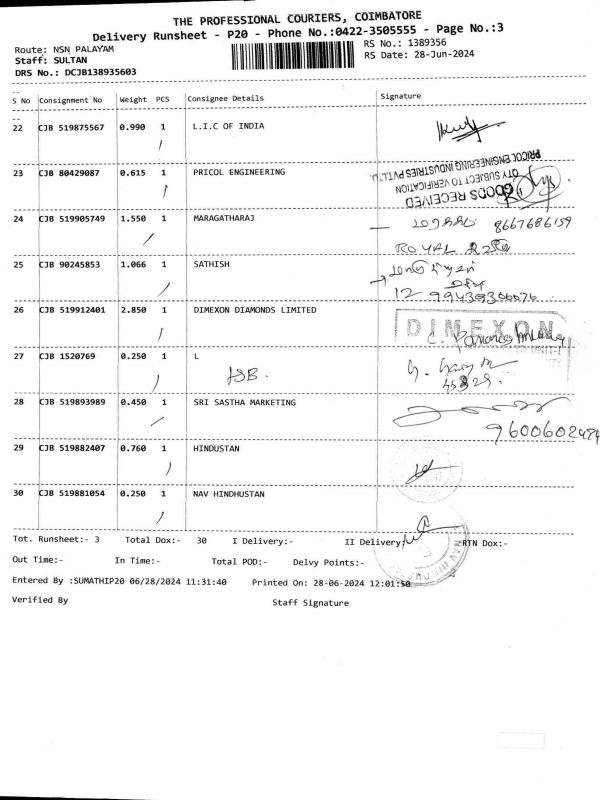 THE PROFESSIONAL COURIERS, COIMBATORE
Delivery Runsheet - P20 - Phone No.:0422-3505555 - Page No.:3
Route: NSN PALAYAM
RS No.: 1389356
Staff: SULTAN
RS Date: 28-Jun-2024
DRS No.: DCJB138935603
S No Consignment No Weight PCS Consignee Details Signature
22 CJB 519875567 0.990 1 L.I.C OF INDIA
23 CJB 80429087 0.615 1 PRICOL ENGINEERING
GOODS RECEIVED
QTY SUBJECT TO VERIFICATION
PRICOL ENGINEERING INDUSTRIES PVT.LTD.
24 CJB 519905749 1.550 1 MARAGATHARAJ
8667686159
ROYAL
25 CJB 90245853 1.066 1 SATHISH
12
26 CJB 519912401 2.850 1 DIMEXON DIAMONDS LIMITED
DIMEXON
27 CJB 1520769 0.250 1 L
28 CJB 519893989 0.450 1 SRI SASTHA MARKETING
29 CJB 519882407 0.760 1 HINDUSTAN
30 CJB 519881054 0.250 1 NAV HINDHUSTAN
Tot. Runsheet:- 3 Total Dox:- 30 I Delivery:- II Delivery:- RTN Dox:-
Out Time:- In Time:- Total POD:- Delvy Points:-
Entered By :SUMATHIP20 06/28/2024 11:31:40 Printed On: 28-06-2024 12:01:50
Verified By Staff Signature